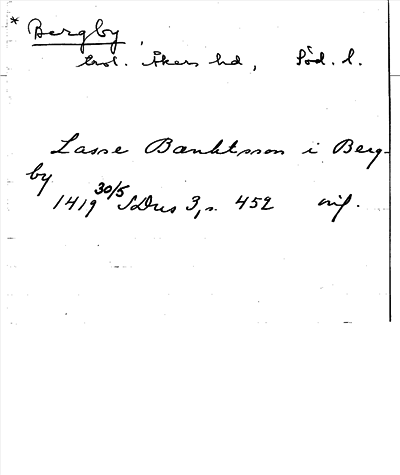 * Bergby,
Åkers hd, Söd. l.
Lasse Bænktsson i Berg-
by
1419 30/5 SDns 3, s. 452 orig.